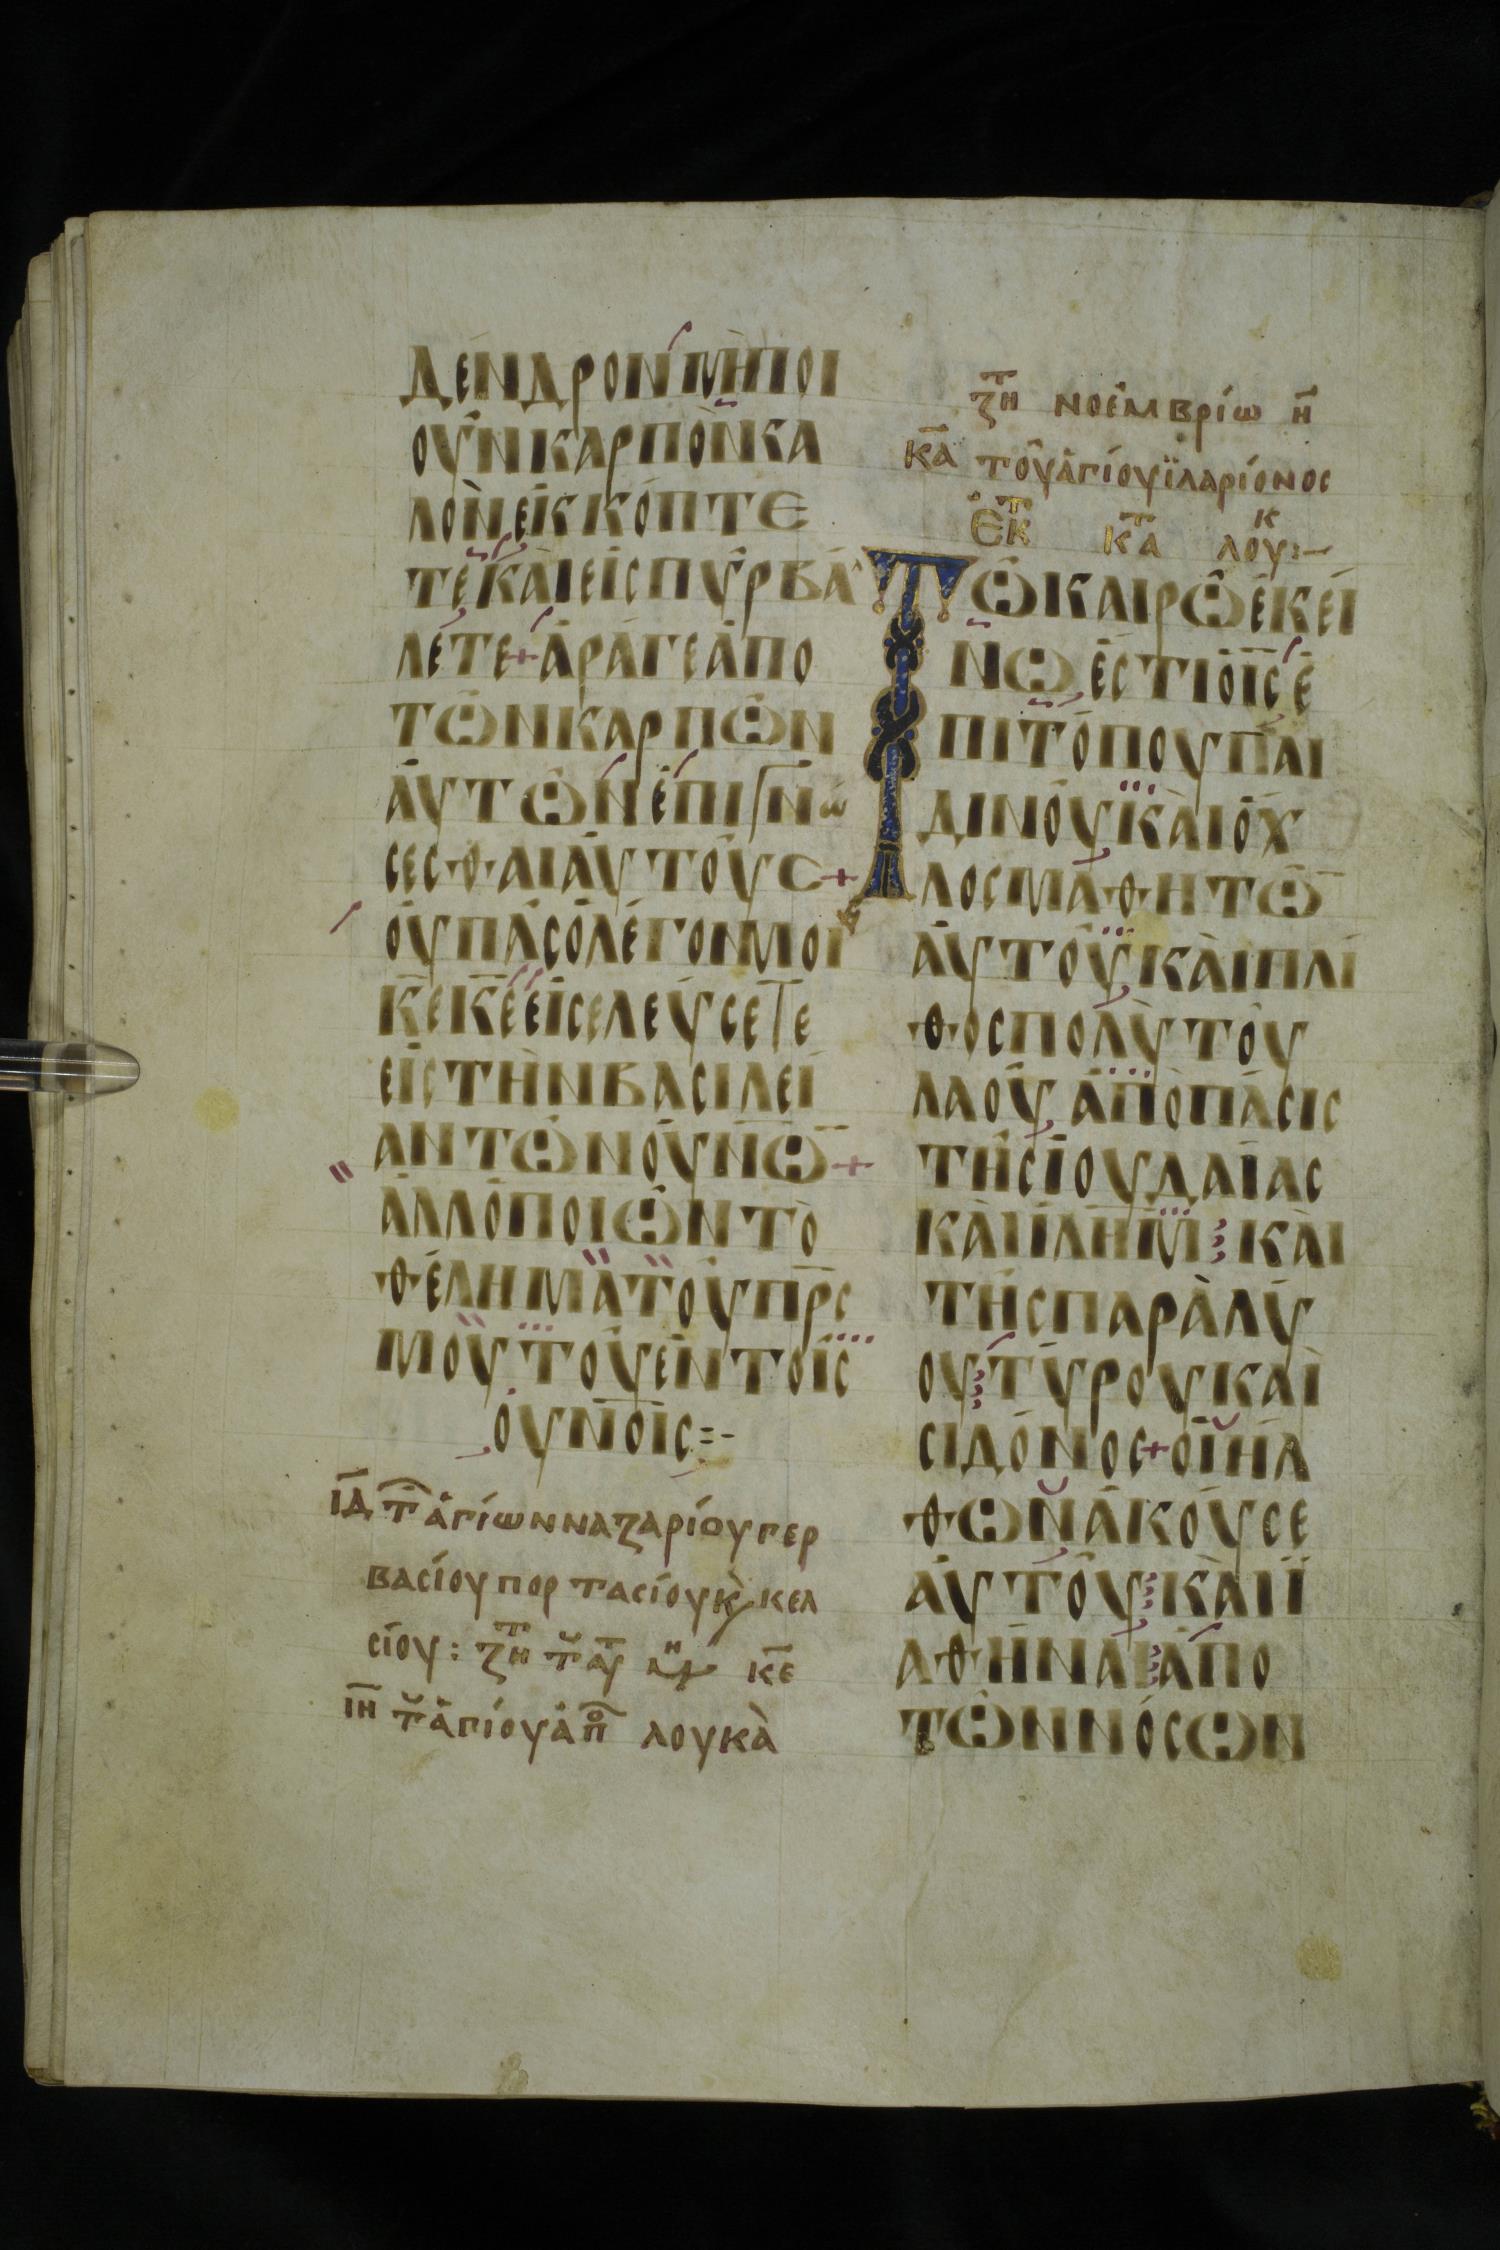 ΔΈΝΔΡΟΝ ΜῊ ΠΟΙ
ΟΥ͂Ν ΚΑΡΠῸΝ ΚΑ
ΛῸΝ ἘΚΚΌΠΤΕ
ΤΕ ΚΑῚ ΕἸΣ ΠΥ͂Ρ ΒΆ
ΛΕΤΕ + ἌΡΑΓΕ ἈΠΟ
ΤΩ͂Ν ΚΑΡΠΩ͂Ν
ΑΥ̓ΤΩ͂Ν ἘΠΙΓΝώ
ΣΕΣΘΑΙ ΑΥ̓ΤΟΎΣ +
ΟΥ̓ ΠΑ͂Σ Ὁ ΛΈΓΩΝ ΜΟΙ
Κ̅Ε̅ Κ̅Ε̅ ΕἸΣΕΛΕΎΣΕΤΕ
ΕἸΣ ΤῊΝ ΒΑΣΙΛΕΊ
ΑΝ ΤΩ͂Ν ΟΥ̓Ν̅Ω̅ +
ἈΛΛ Ὁ ΠΟΙΩ͂Ν ΤῸ
ΘΈΛΗΜΑ ΤΟΥ͂ Π̅Ρ̅Σ̅
ΜΟΥ ΤΟΥ͂ ἘΝ ΤΟΙ͂Σ
ΟΥ̓Ν̅ΟΙ͂Σ =-
ΙΔ̅ τ̅ ἁγίων ναζαρίου γερ
βασίου πορτασίου κ̀ κελ
σίου: ζη̅τ τ̆ αρ̅ κε̅
ΙΗ̅ τ̆ ἁγίου ἀπο̅ λουκὰ
ζη̅τ νοεμβρίω η̅
κα̅ του̂ ἁγίου ϊλαρίονος
Ἐκ̅τ κ̅τα λουκ :-
ΤΩ͂ ΚΑΙΡΩ͂ ἘΚΕΊ
ΝΩ ἜΣΤΙ Ὁ Ι̅Σ̅ Ἐ
ΠῚ ΤΌΠΟΥ ΠΑΙ
ΔΙΝΟΥ͂ ΚΑῚ Ὄ̈Χ
ΛΟΣ ΜΑΘΗΤΩ̅
ΑΥ̓ΤΟΥ͂ ΚΑῚ ΠΛΙ͂
ΘΟΣ ΠΟΛῪ ΤΟΥ͂
ΛΑΟΥ͂ ἈΠῸ ΠΆΣΙΣ
ΤΗ͂Σ ἸΟΥΔΑΊΑΣ
ΚΑῚ Ι̅Λ̅Η̅Μ̅ ΚΑῚ
ΤΗ͂Σ ΠΑΡΑΛΎ
ΟΥ ΤΎΡΟΥ ΚΑῚ
ΣΙΔΌΝΟΣ + ΟἹ ἮΛ
ΘΩΝ ἈΚΟΥ͂ΣΕ
ΑΥ̓ΤΟΥ͂ ΚΑῚ Ϊ
ΑΘΗ͂ΝΑΙ ἈΠΟ
ΤΩ͂Ν ΝΌΣΩΝ